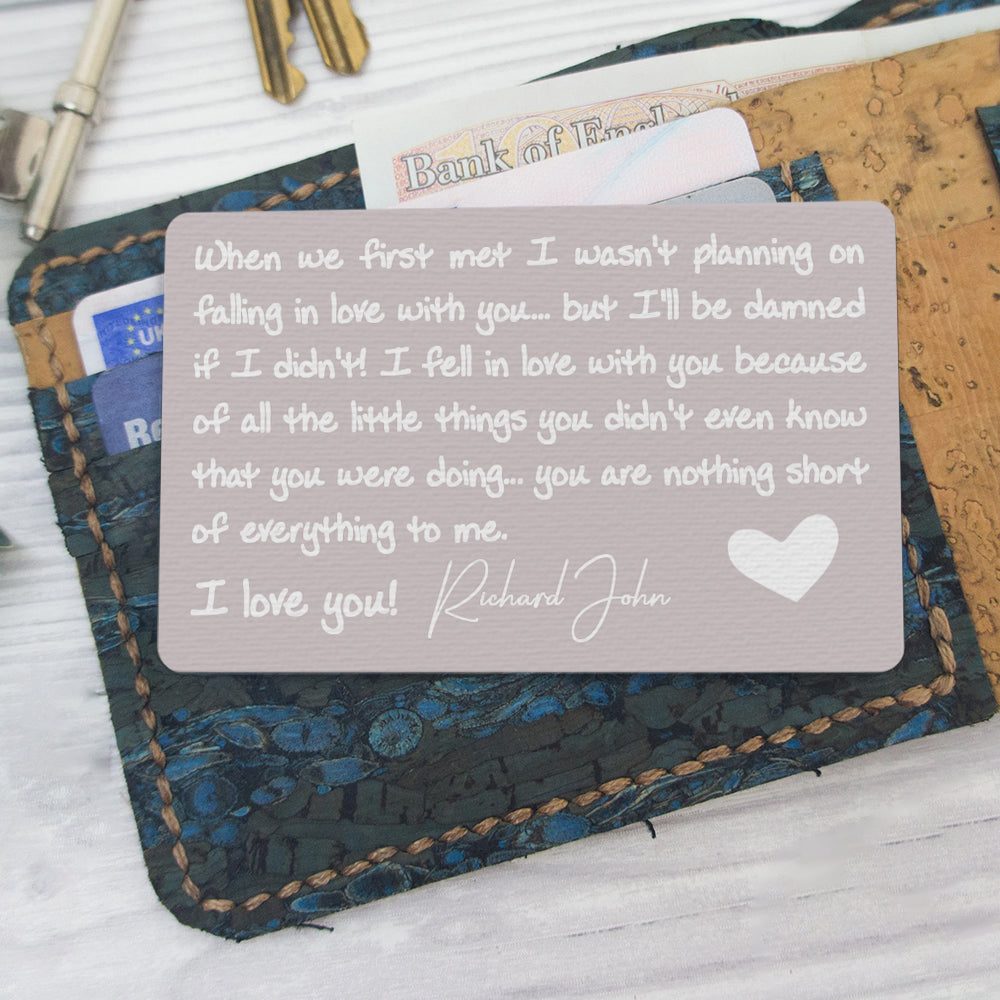 10
Bank of Engl
UK
Re
When we first met I wasn't planning on
falling in love with you... but I'll be damned
if I didn't! I fell in love with you because
of all the little things you didn't even know
that you were doing... you are nothing short
of everything to me.
I love you! Richard John